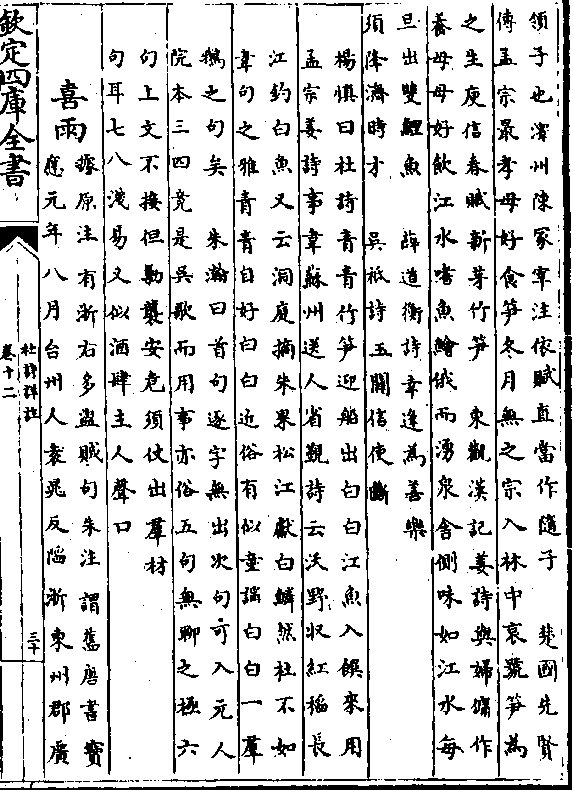 領子也濱州陳冢宰注依賦直當作隨子　楚國先賢
傳孟宗最孝母好食筍冬月無之宗入林中哀號筍為
之生庾信春賦新芽竹筍　東觀漢記姜詩與婦傭作
養母母好飲江水嗜魚鱠俄而湧泉舍側味如江水每
旦出雙鯉魚　薛道衡詩幸逢為善樂
須降濟時才　吳祗詩五關信使斷
楊慎曰杜詩青青竹筍迎船出白白江魚入饌來用
孟宗姜詩事韋蘇州送人省覲詩云沃野收紅稻長
江釣白魚又云洞庭摘朱果松江獻白鱗然杜不如
韋句之雅青青自好白白近俗有似童謠白白一羣
鵝之句矣　朱瀚曰首句逐字無出次句可入元人
院本三四竟是吳歌而用事亦俗五句無聊之極六
句上文不接但勦襲安危須仗出羣材
句耳七八淺易又似酒肆主人聲口
喜雨
鶴原注有浙右多盜賊句朱注謂舊唐書寶
應元年八月台州人袁晁反陷浙東州郡廣
欽定四庫全書
杜詩詳註
卷十二
三十